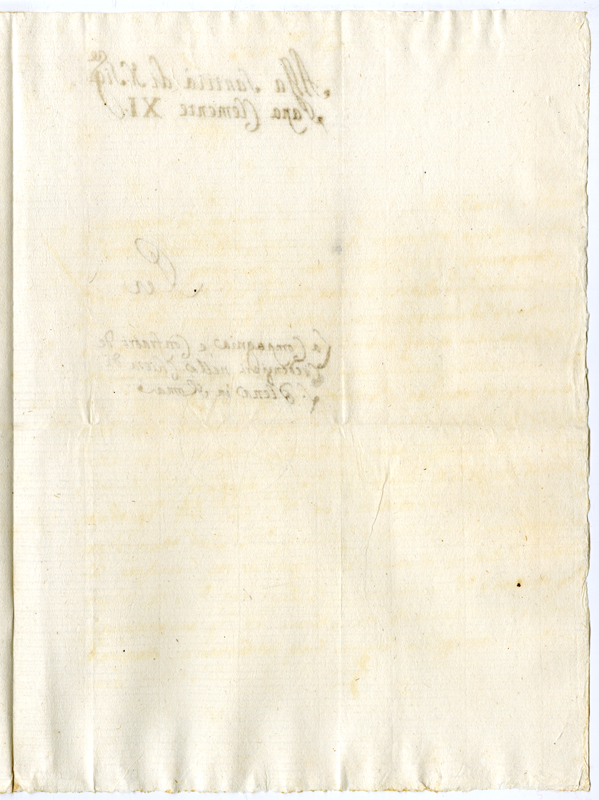 Alla Santità di N. Sig.re
Papa Clemente XI.
Per
La Compagnia e Confratri de
nella Chiesa di
S. in Roma